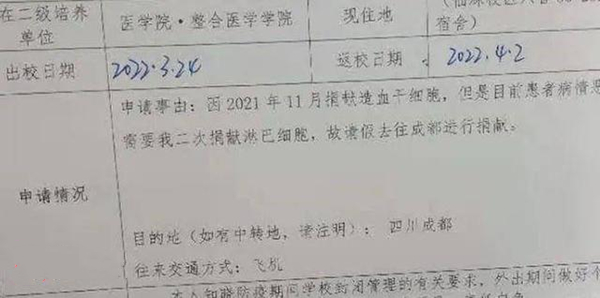 在二级培养 医学院·整合医学学院 现住地
单位 宿舍)
出校日期 2022.3.24 返校日期 2022.4.2
申请事由：因 2021 年 11 月捐献造血干细胞，但是目前患者病情恶
需要我二次捐献淋巴细胞，故请假去往成都进行捐献。
申请情况
目的地（如有中转地，请注明）： 四川成都
往来交通方式：飞机
本人知晓防疫期间学校封闭管理的有关要求，外出期间做好个